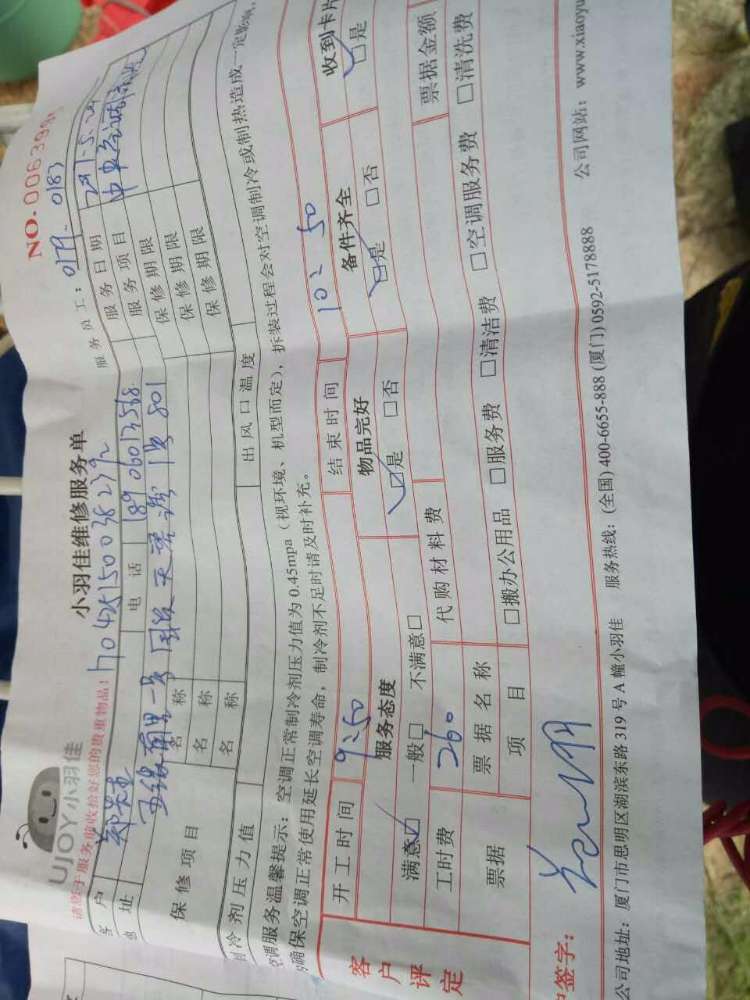 UJOY小羽佳
小羽佳维修服务单
NO.006399
请您于服务前收拾好您的贵重物品: h04251500382392
服务员工: 0179 0183
户
电话 18906013568
服务日期
址 五缘 里一号 国 天 1号 801
服务项目 中央空调
保修项目
名称
保修期限
名称
保修期限
名称
保修期限
制冷剂压力值
出风口温度
空调服务温馨提示: 空调正常制冷剂压力值为0.45mpa(视环境、机型而定), 拆装过程会对空调制冷或制热造成一定影响,
为确保空调正常使用延长空调寿命, 制冷剂不足时请及时补充。
客户评定
开工时间 9:50
结束时间 10: 50
服务态度
物品完好
备件齐全
收到卡片
满意☑ 一般□ 不满意□
☑是 □否
☑是 □否
☑是
工时费 260
代购材料费
票据金额
票据
票据名称
项目
□搬办公用品 □服务费 □清洁费 □空调服务费 □清洗费
签字:
公司地址: 厦门市思明区湖滨东路319号A幢小羽佳
服务热线: (全国) 400-6655-888 (厦门) 0592-5178888
公司网站: www.xiaoyu